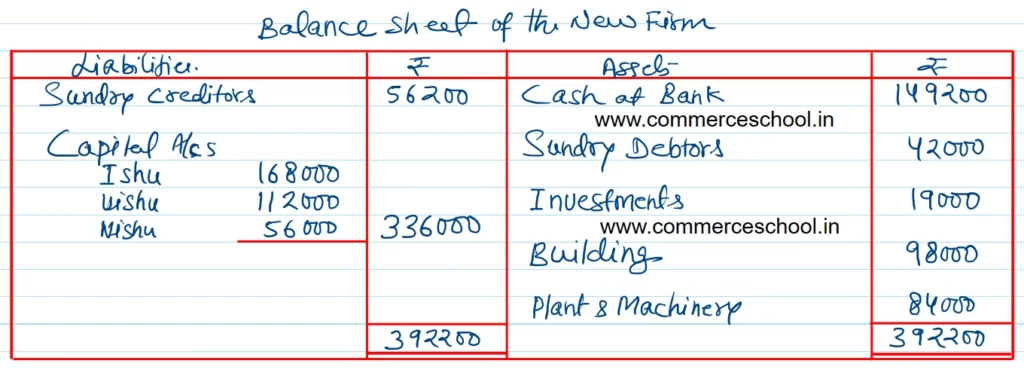 Balance Sheet of the New Firm
Liabilities. ₹ Assets ₹
Sundry Creditors 56200 Cash at Bank 149200
www.commerceschool.in
Capital A/cs Sundry Debtors 42000
Ishu 168000
Vishu 112000 Investments 19000
Nishu 56000 336000 www.commerceschool.in
Building 98000
Plant & Machinery 84000
392200 392200